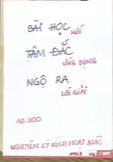 BÀI HỌC
MỚI
TÂM ĐẮC
ỨNG DỤNG
NGỘ RA
LỜI GIẢI
10.000
NGUYÊN LÝ KÍCH HOẠT